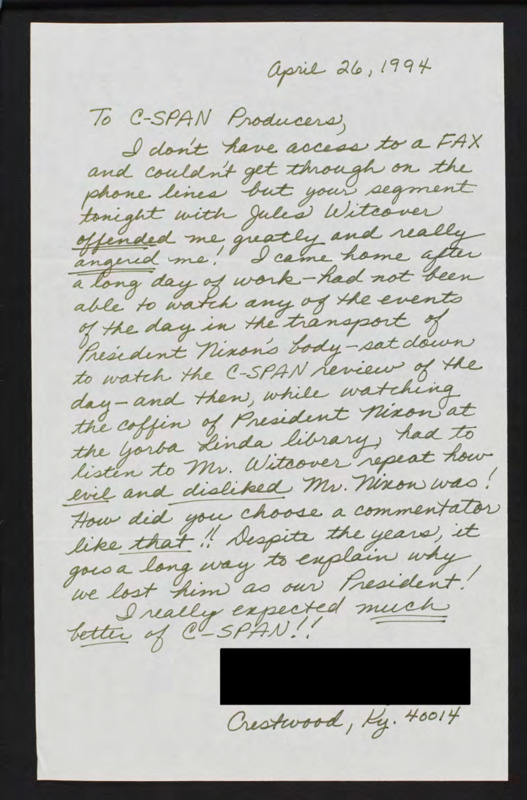 April 26, 1994
To C-SPAN Producers,
I don't have access to a FAX
and couldn't get through on the
phone lines but your segment
tonight with Jules Witcover
offended me greatly and really
angered me! I came home after
a long day of work – had not been
able to watch any of the events
of the day in the transport of
President Nixon's body – sat down
to watch the C-SPAN review of the
day – and then, while watching
the coffin of President Nixon at
the Yorba Linda library, had to
listen to Mr. Witcover repeat how
evil and disliked Mr. Nixon was!
How did you choose a commentator
like that!! Despite the years, it
goes a long way to explain why
we lost him as our President!
I really expected much
better of C-SPAN!!
Crestwood, Ky. 40014